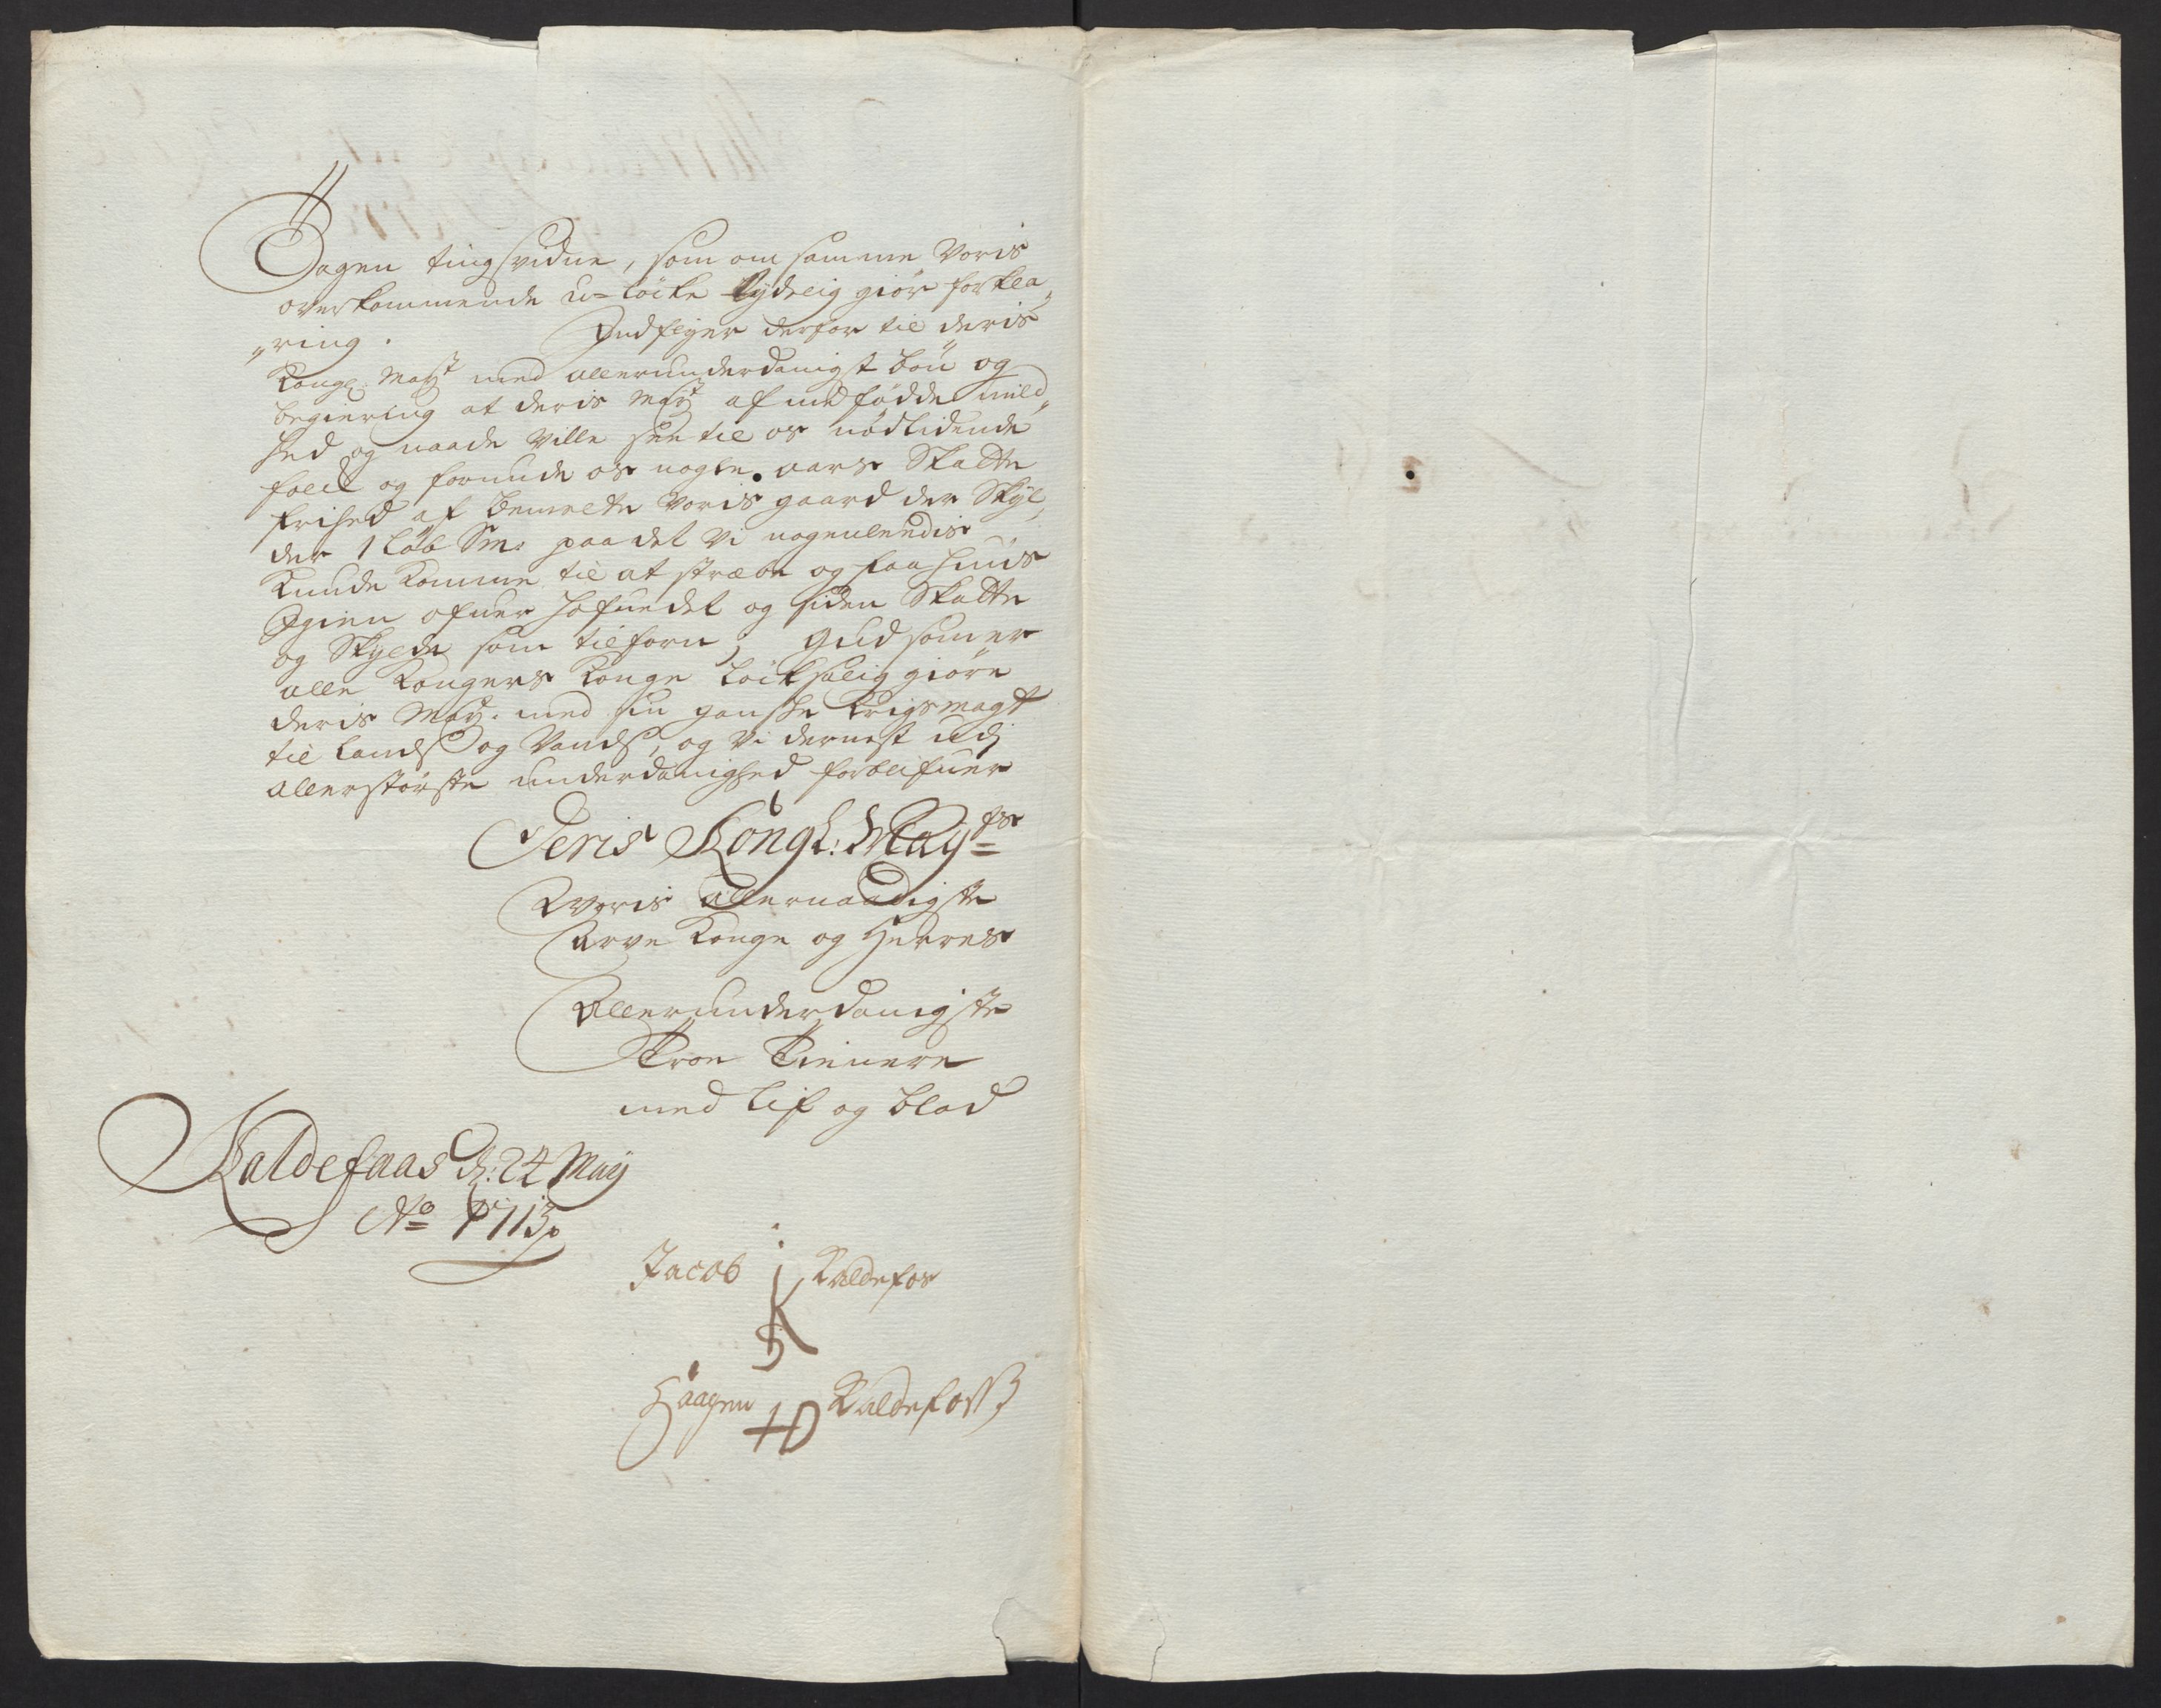 Tagen tingsvidne, som om samme voris
overkommende u-löcke tydelig giör forkla„
„ring. Indflyer derfor til deris
Kongl: May:st med allerunderdanigst bön og
begiering at deris May:st af medfödde mild„
hed og naade ville see til os nödlidende
folck og forunde os nogle aars Skatte
frihed af bemelte voris gaard der Skyl„
der 1 löb Sm: paa det vi nogenlendis
Kunde Komme til at stræbe og faa huus
Igien ofuer hofuedet og siden Skatte
og Skylde som tilforn, Gud som er
alle Kongers Konge löcksalig giöre
deris May: med sin gandske Krigsmagt
til lands og vands, og vi dernest udj
allerstörste underdanighed forblifuer
Deris Kongl: May:ts
Voris allernaadigste
Arve Konge og Herres
Allerunderdanigste
Troe Tienere
med lif og blod
Kaldefaas d: 24 May
Ao 1713
Jacob K Kaldefos
Haagen HD Kaldefoss